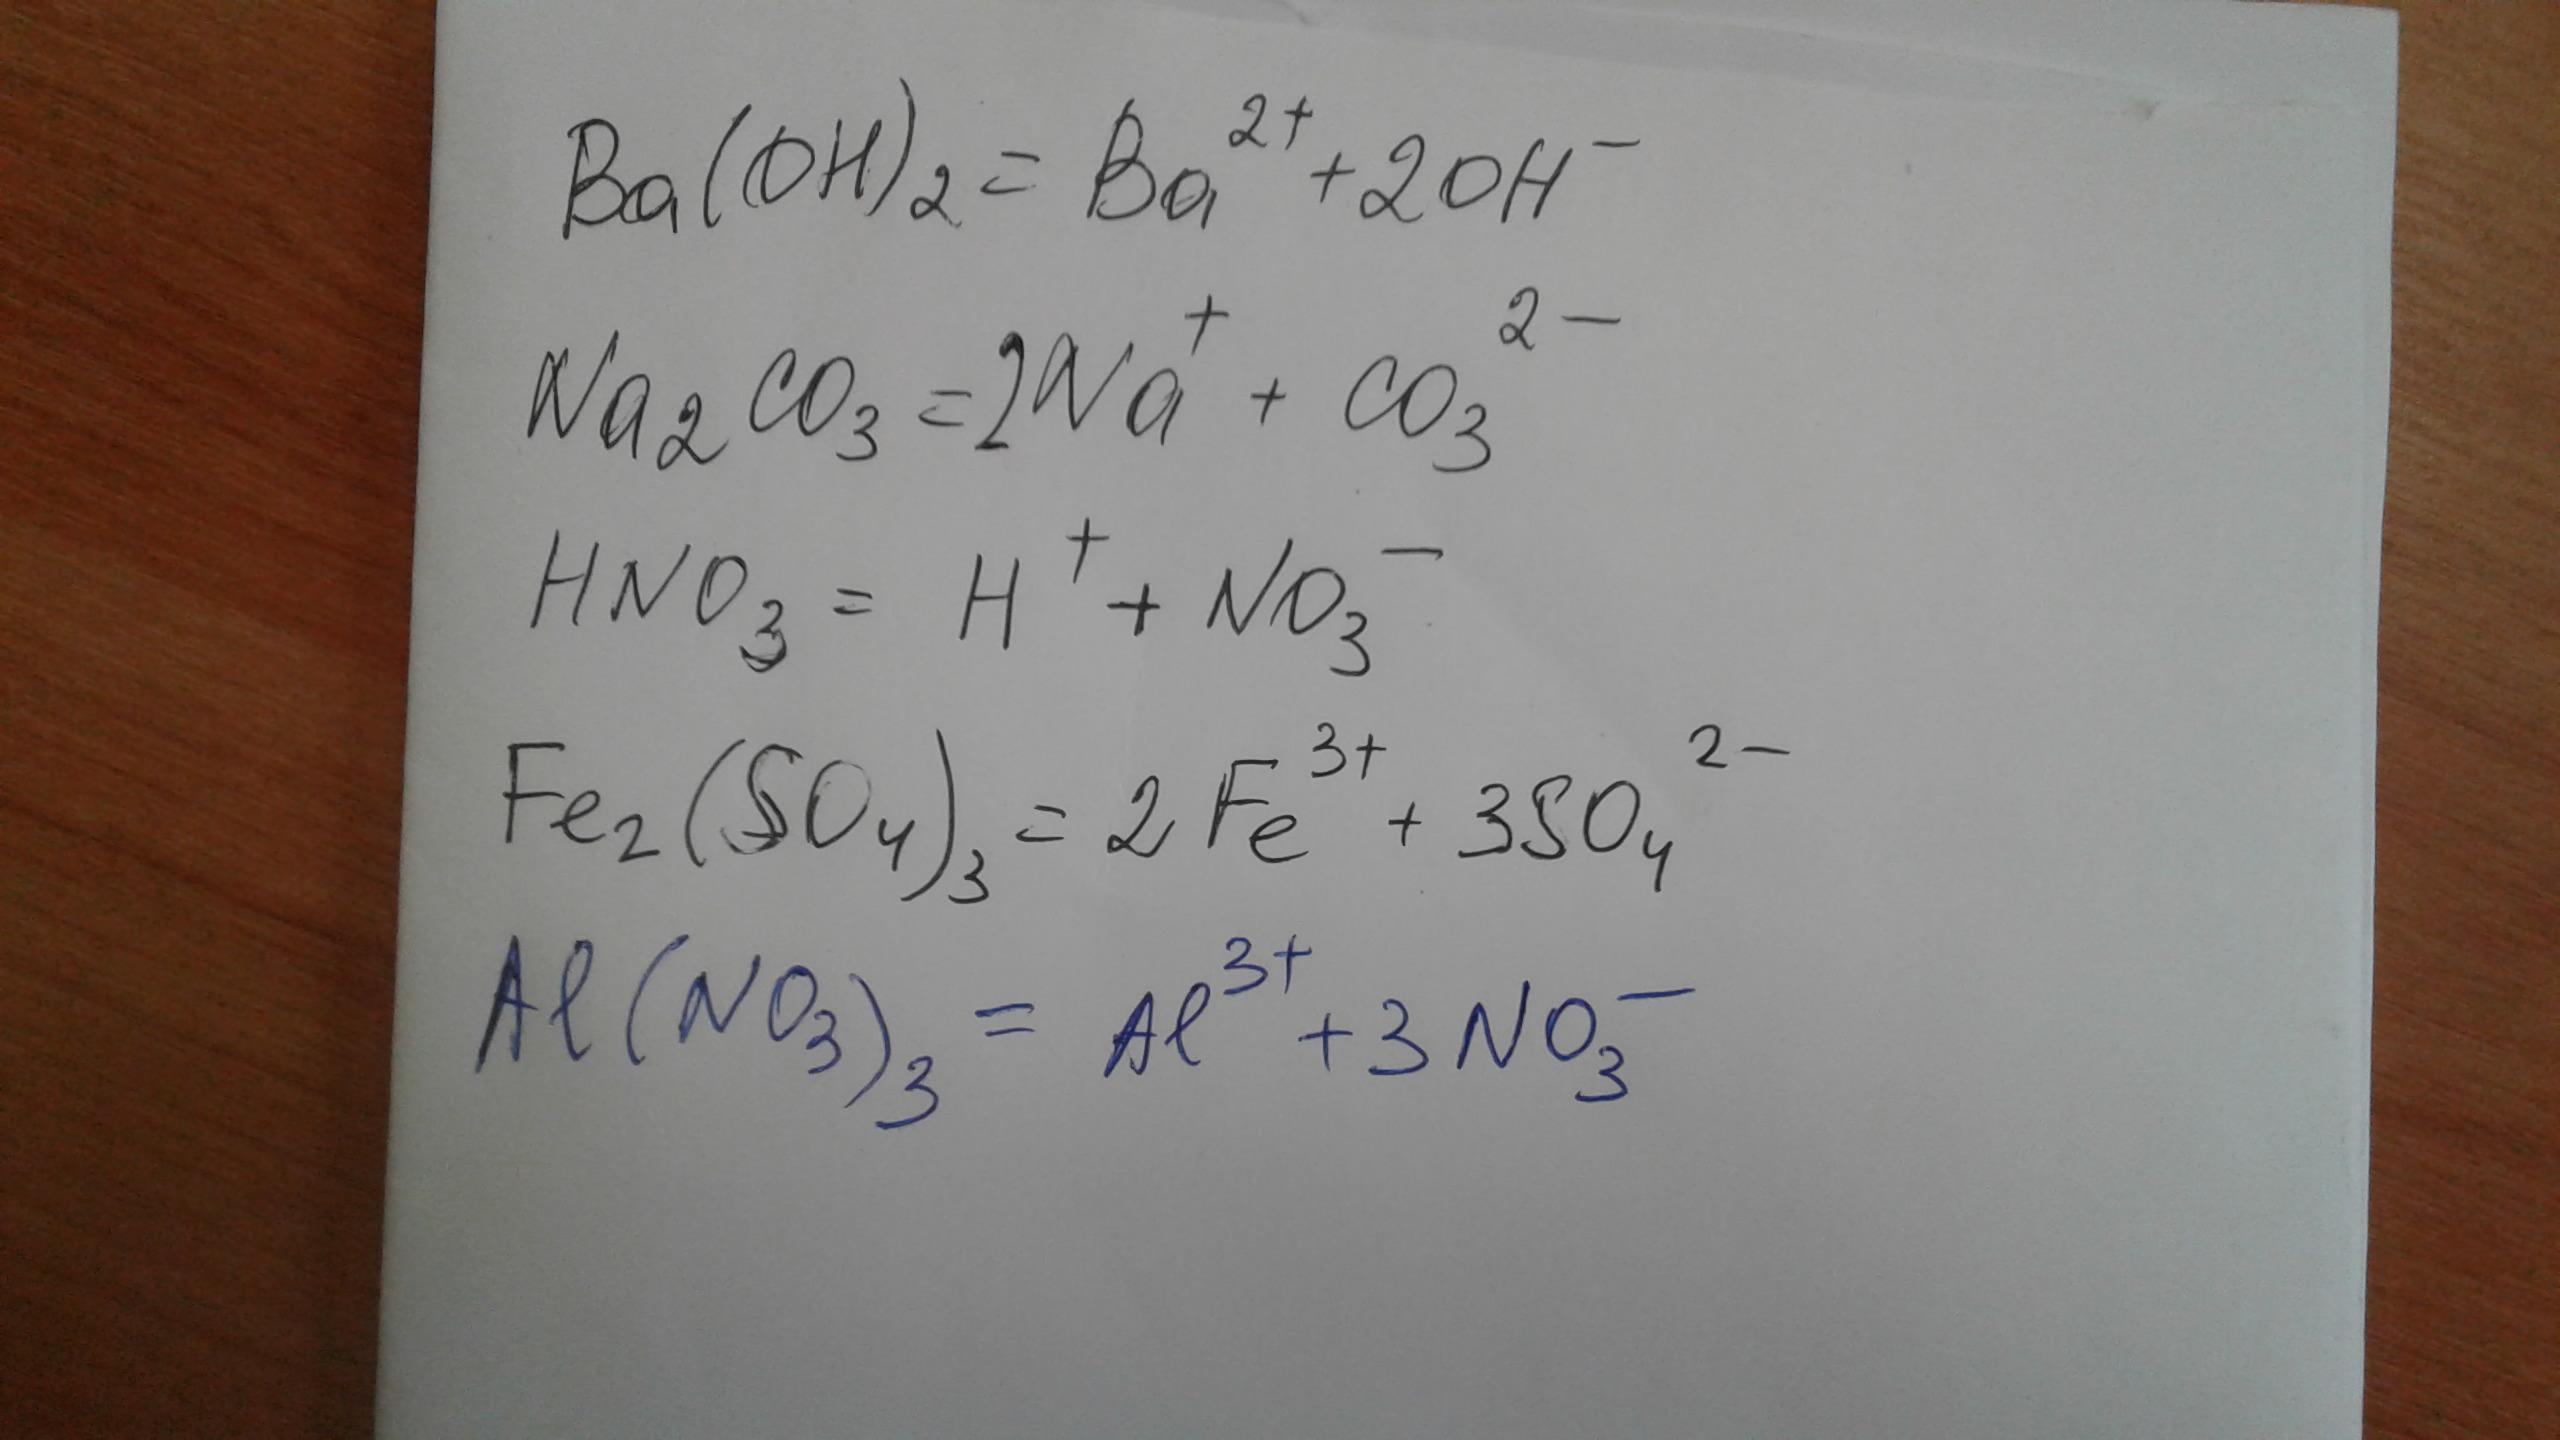 Ba(OH)₂ = Ba²⁺ + 2OH⁻
Na₂CO₃ = 2Na⁺ + CO₃²⁻
HNO₃ = H⁺ + NO₃⁻
Fe₂(SO₄)₃ = 2Fe³⁺ + 3SO₄²⁻
Al(NO₃)₃ = Al³⁺ + 3NO₃⁻